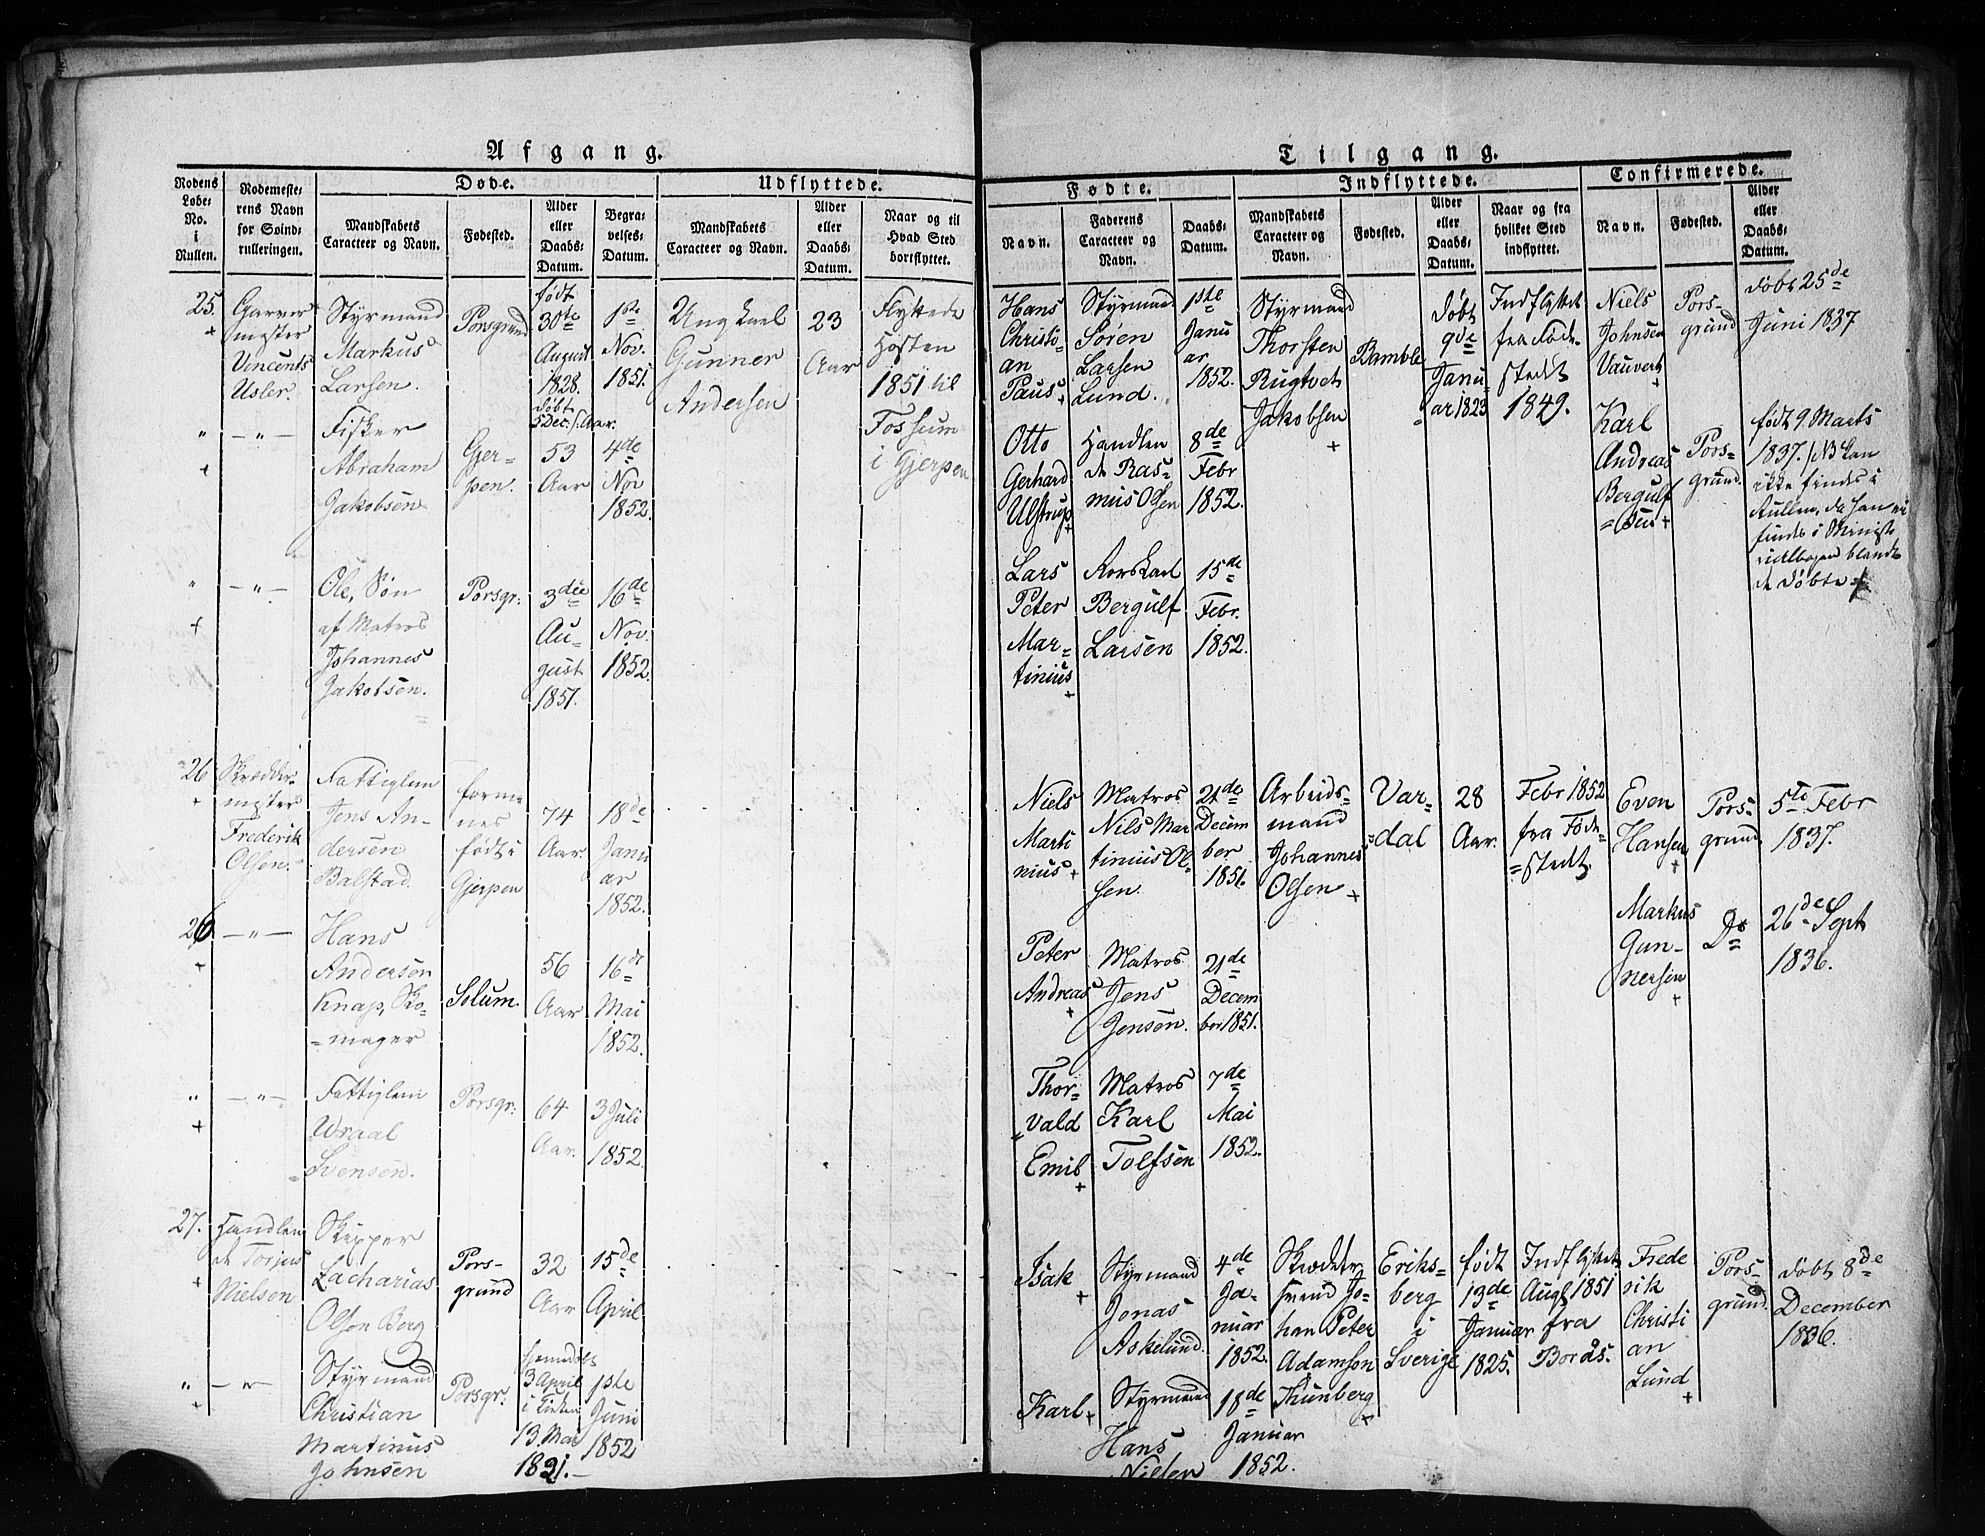 Afgang.
Rodens
Løbe-
No.
i
Rullen.
Rodemeste-
rens Navn
for Søind-
rulleringen.
Døde.
Mandskabets
Caracteer og Navn.
Fødested.
Alder
eller
Daabs-
Datum.
Begra-
velses-
Datum.
Udflyttede.
Mandskabets
Caracteer og Navn.
Alder
eller
Daabs-
Datum.
Naar og til
hvad Sted
bortflyttet.
25.
+
Garver
mester
Vincents
Usler.
Styrmand
Markus
Larsen.
Porsgrund
født
30te
August
1828.
døbt
5 Dec. s. Aar.
1ste
Nov.
1851.
Ungkarl
Gunner
Andersen
23
Aar
Flyttede
Høsten
1851 til
Fossum
i Gjerpen
" — " —
+
Fisker
Abraham
Jakobsen
Gjer-
pen.
53
Aar
4de
Nov
1852.
" — " —
+
Ole, Søn
af Matros
Johannes
Jakobsen.
Porsgr:
3die
Au-
gust
1851.
16de
Nov.
1852
26
+
Skrædder-
mester
Frederik
Olsen.
Fattiglem
Jens An-
dersen
Balstad.
formo
nes
født i
Gjerpen
74
Aar.
18de
Janu
ar
1852.
26. — " —
+
Hans
Andersen
Knap, Sko-
=mager
Solum.
56
Aar
16de
Mai
1852.
" — " —
+
Fattiglem
Wraal
Svensen.
Porsgr:
64
Aar.
3 Juli
1852.
27.
+
Handlen
de Torjus
Nielsen
Skipper
Zacharias
Olsen Berg
Pors-
grund
32
Aar
15de
April
" — " —
+
Styrmand
Christian
Martinus
Johnsen
Porsgr:
hjemdøbt
3 April
i Kirken
13. Mai
1821.—
1ste
Juni
1852
Tilgang.
Fødte.
Navn.
Faderens
Caracteer og
Navn.
Daabs-
Datum.
Indflyttede.
Mandskabets
Caracteer og
Navn.
Fødested.
Alder
eller
Daabs-
Datum.
Naar og fra
hvilket Sted
indflyttet.
Confirmerede.
Navn.
Fødested.
Alder
eller
Daabs-
Datum.
Hans
Christi-
an
Paus+
Styrmand
Søren
Larsen
Lund.
1ste
Janu
ar
1852.
Styrmand
Thorsten
Rugtvet
Jakobsen
+
Bamble
døbt
9de
Janu-
ar 1823
Indflyttet
fra Føde-
stedet
1849.
Niels
Johnsen
Vauvert
+
Pors-
grund
døbt 25de
Juni 1837
Otto
Gerhard
Ulstrup
+
Handlen
de Ras-
mus Olsen
8de
Febr
1852.
Karl
Andreas
Bergulf
=sen+
Pors-
grund.
født 9. Marts
1837. / NB kan
ikke findes i
Rullen, da han ei
findes i Ministe
rialbogen blandt
de døbte +
Lars
Peter
Mar-
tinius
+
Avlskarl
Bergulf
Larsen
15de
Febr.
1852.
Niels
Marti
nius+
Matros
Nils Mar
tinius Ol-
sen.
21de
Decem
ber
1851.
Arbeids-
mand
Johannes
Olsen+
Vær-
=dal
28
Aar.
Febr 1852
fra Føde-
=stedet.
Even
Hansen
+
Pors-
grund
5te Febr
1837.
Markus
Gun-
nersen
+
Do
26de Sept
1836.
Peter
Andreas
+
Matros
Jens
Jensen.
21de
Decem
ber 1851.
Thor-
=vald
Emil
+
Matros
Karl
Tolfsen
7de
Mai
1852.
Isak
+
Styrmand
Jonas
Askelund.
4de
Ja-
nuar
1852.
Skrædder
svend Jo-
han Peter
Adamson
Thunberg
+
Eriks-
berg
i
Sverige
født
13de
Januar
1825.
Indflyttet
Augst 1851
fra
Borås.
Frede
rik
Christi
an
Lund
+
Pors-
grund.
døbt 8de
December
1836.
Karl+
Styrmand
Hans
Nielsen
18de
Januar
1852.